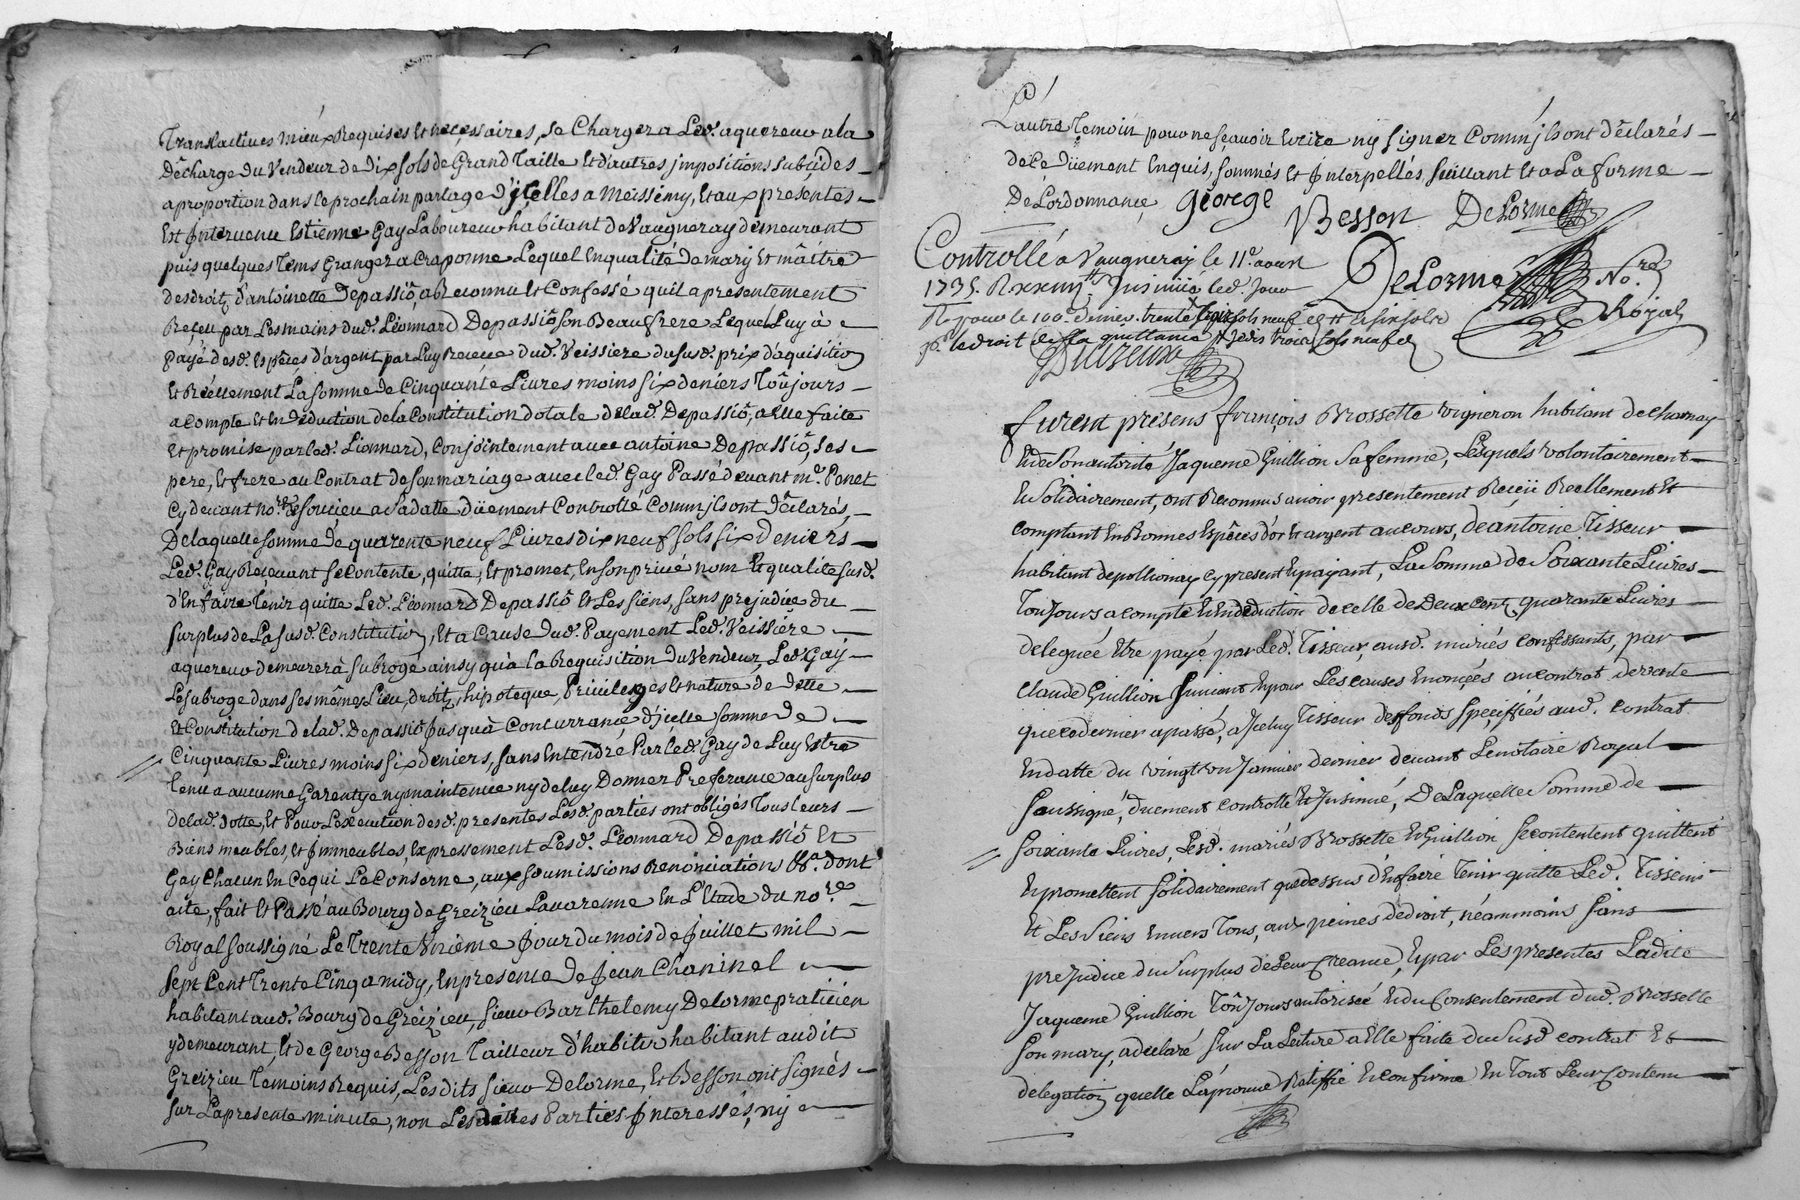 Translatives mieux Requises et necessaires, se Chargera Led. aquereur a la
décharge du Vendeur de dix sols de Grand Taille et d'autres jmpositions subcides
a proportion dans le prochain partage d'jcelles a Meissimy, et aux presentes
Est Jntervenu Estienne Gay Laboureur habitant de Vaugneray demeurant
puis quelques tems Granger a Craponne Lequel en qualité de mary et maitre
des droitz d'antoinette Depassiô, a Reconnu et Confessé qu'il a presentement
Reçeu par Les mains dud. Léonnard Depassiô son Beaufrere Lequel Luy à
payé desd. Espéces d'argent par Luy Receues dud. Veissiere du susd. prix d'aquisition
et Réellement La somme de Cinquante Livres moins six deniers Toûjours
a compte et en déduction de la Constitution dotale de lad. Depassiô, a elle faite
et promise par led. Léonnard, Conjointement avec antoine Depassiô, ses
pere, et frere au Contrat de son mariage avec led. Gay Passé devant Mr. Ponet
Cy devant no.re de soucieu a sa datte düement Controllé Comm'jls ont déclarés,
De laquelle somme de quarente neuf Livres dix neuf sols six deniers
Led. Gay Recevant se contente, quitte, et promet, En son privé nom et qualité susd.
d'En faire Tenir quitte Led. Léonnard Depassiô et Les siens, sans prejudice du
surplus de La susd. Constitution, et a Cause dud. Payement Led. Veissiére
aquereur demeurera subrogé ainsy qu'à la Requisition du Vendeur, Led. Gay
Le subroge dans ses mêmes Lieu, droitz, hipoteque, Privileges et nature de dette
et Constitution de lad. Depassiô jusqu'à Concurrance d'jcelle somme de
Cinquante Livres moins six deniers, sans Entendre Par led. Gay de Luy Estre
tenu a aucune Garentye ny maintenue ny de luy Donner Preferance au surplus
de lad. dotte, et Pour L'exécution desd. presentes Lesd. parties ont obligés Tous leurs
Biens meubles, et Jmmeubles, expressement Lesd. Léonnard Depassiô et
Gay Chacun En Ce qui Le Conserne, aux soumissions Renonciations &a. dont
acte, fait et Passé au Bourg de Greizieu Lavarenne En L'Etude du no.re
Royal soussigné Le Trente Unième Jour du mois de Juillet mil
sept Cent Trente Cinq a midy, En presence de Jean Chaninel
habitant aud. Bourg de Greizieu, sieur Barthelemy Delorme praticien
y demeurant, et de George Besson Tailleur d'habits habitant audit
Greizieu Temoins Requis, Les dits sieur Delorme, et Besson ont signés
sur La presente minute, non Lesdites Parties Jnteressés, ny
L'autre Temoin pour ne sçavoir Ecrire ny signer Comm'jls ont déclarés
de ce düement Enquis, sommés et Jnterpellés, suivant et a La forme
De L'ordonnance
George Besson Delorme
Controllé a Vaugneray le 11e. aoust
1735. R Jnsinüé led. Jour
R pour le 100e. denier trente sols neuf
p. le droit de la quittance
Delorme No.re Royal
Ducreux
furent présens françois Brossette vigneron habitant de charnay
Et de son autorité Jaqueme Guillion sa femme, Lesquels volontairement
Et solidairement, ont Reconnus avoir presentement Reçeü Reellement et
comptant En Bonnes Espéces d'or et argent au cours, de antoine Tisseur
habitant de pollionay cy present Et payant, La somme de Soixante Livres
Toujours a compte Et En déduction de celle de Deux Cent quarante Livres
deleguée Etre payé par Led. Tisseur, ausd. mariés confessants, par
claude Guillion Suivant Et pour Les causes Enonçées au contrat de vente
que ce dernier a passé, a Jceluy Tisseur des fonds spéciffiés aud. contrat
En datte du vingt un Janvier dernier devant Le notaire Royal
soussigné, duement controllé Et Jnsinué, De Laquelle somme de
soixante Livres, Lesd. mariés Brossette Et Guillion se contentent quittent
Et promettent solidairement que dessus d'En faire Tenir quitte Led. Tisseur
Et Les Siens Envers Tous, aux peines de droit, néammoins sans
prejudice du surplus de Leur creance, Et par Les presentes Ladite
Jaqueme Guillion Toûjours autorisée Et du consentement dud. Brossette
son mary, a declaré sur La Lecture a Elle faite du susd. contrat Et
delegation quelle L'aprouve Ratiffie Et confirme En Tout Leur contenu